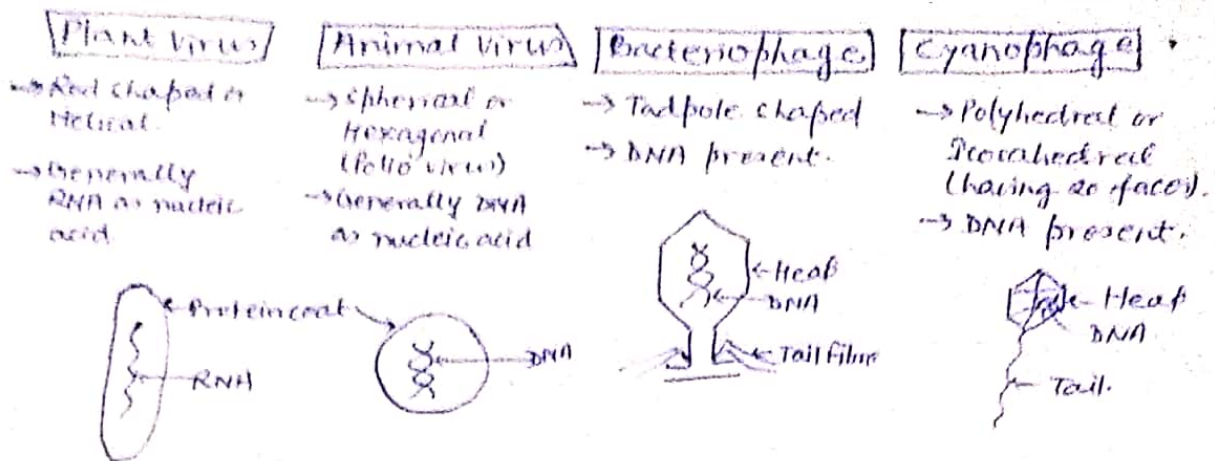 Plant Virus
→ Rod shaped or
Helical.
→ Generally
RNA as nucleic
acid
Protein coat
RNA
Animal Virus
→ Spherical or
Hexagonal
(Polio virus)
→ Generally DNA
as nucleic acid
DNA
Bacteriophage
→ Tadpole shaped
→ DNA present.
Head
DNA
Tail fibre
Cyanophage
→ Polyhedral or
Icosahedral
(having 20 faces).
→ DNA present.
Head
DNA
Tail.